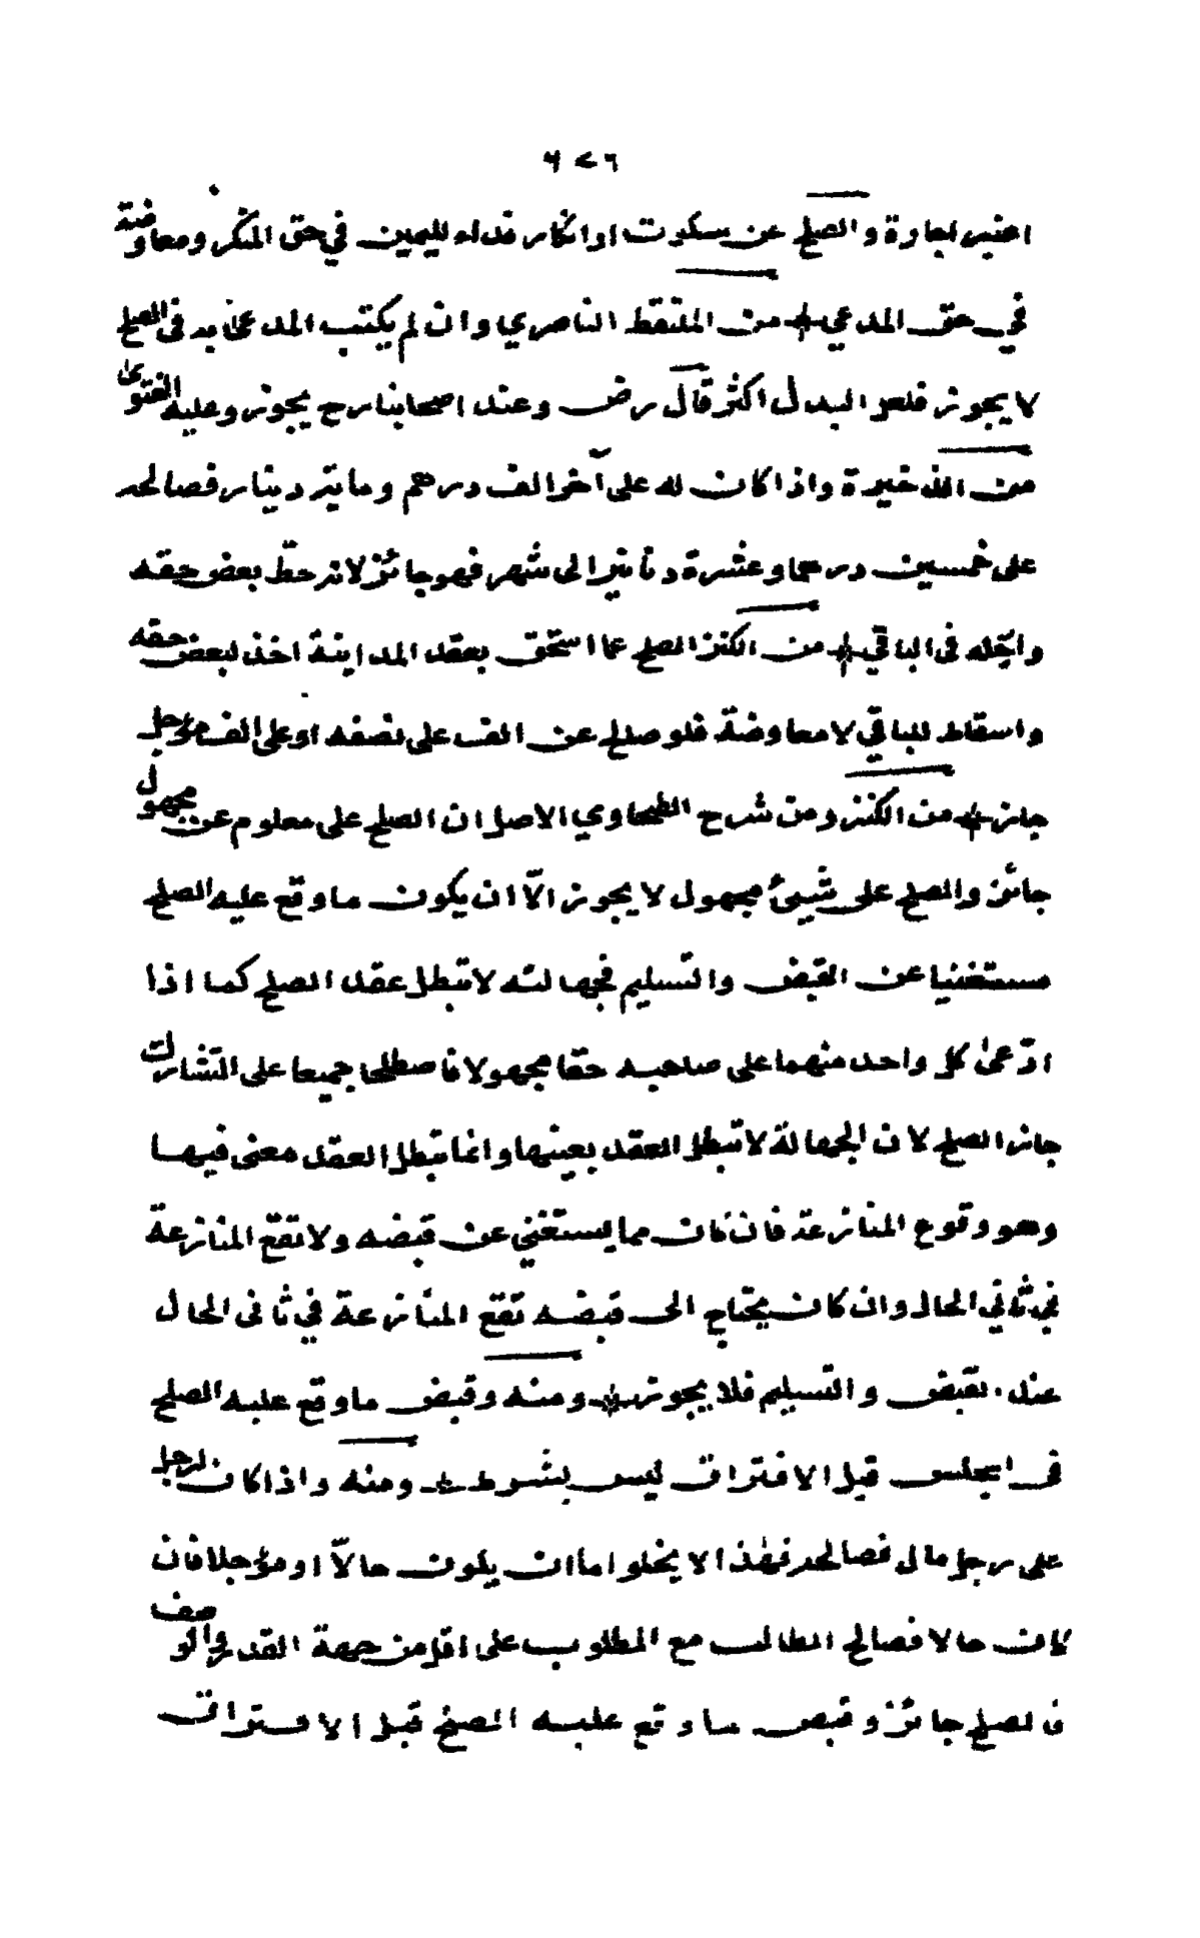 ٦٧٦
اعتبر اجارة والصلح عن سكوت او انكار فداء لليمين في حق المنكر ومعاوضة
في حق المدعي من الملتقط الناصري وان لم يكتب المدعى به فى الصلح
لا يجوز فلعل البدل اكثر قال رض وعند اصحابنا رح يجوز وعليه الفتوى
من الذخيرة واذا كان له على آخر الف درهم ومايتر دينار فصالحه
على خمسين درهما وعشرة دنانير الى شهر فهو جائز لانه حطّ بعض حقه
واجّله فى الباقي من الكنز الصلح عما استحق بعقد المداينة اخذ لبعض حقه
واسقاط للباقي لا معاوضة فلو صالح عن الف على نصفه او على الف مؤجل
جاز من الكنز ومن شرح الطحاوي الاصل ان الصلح على معلوم عن مجهول
جائز والصلح على شيئ مجهول لا يجوز الّا ان يكون ما وقع عليه الصلح
مستغنيا عن القبض والتسليم فجهالته لا تبطل عقد الصلح كما اذا
ادّعى كل واحد منهما على صاحبه حقا مجهولا فاصطلحا جميعا على التشارك
جاز الصلح لان الجهالة لا تبطل العقد بعينها وانما تبطل العقد معنى فيها
وهو وقوع المنازعة فان كان مما يستغني عن قبضه ولا تقع المنازعة
في ثاني الحال وان كان يحتاج الى قبضه تقع المنازعة في ثانى الحال
عند القبض والتسليم فلا يجوز ومنه وقبض ما وقع عليه الصلح
فى المجلس قبل الافتراق ليس بشرط ومنه واذا كان لرجل
على رجل مال فصالحه فهذا لا يخلوا ما ان يكون حالّا او مؤجلا فان
كان حالا فصالح الطالب مع المطلوب على اقل من جهة القدر والوصف
فالصلح جائز وقبض ما وقع عليه الصلح قبل الافتراق